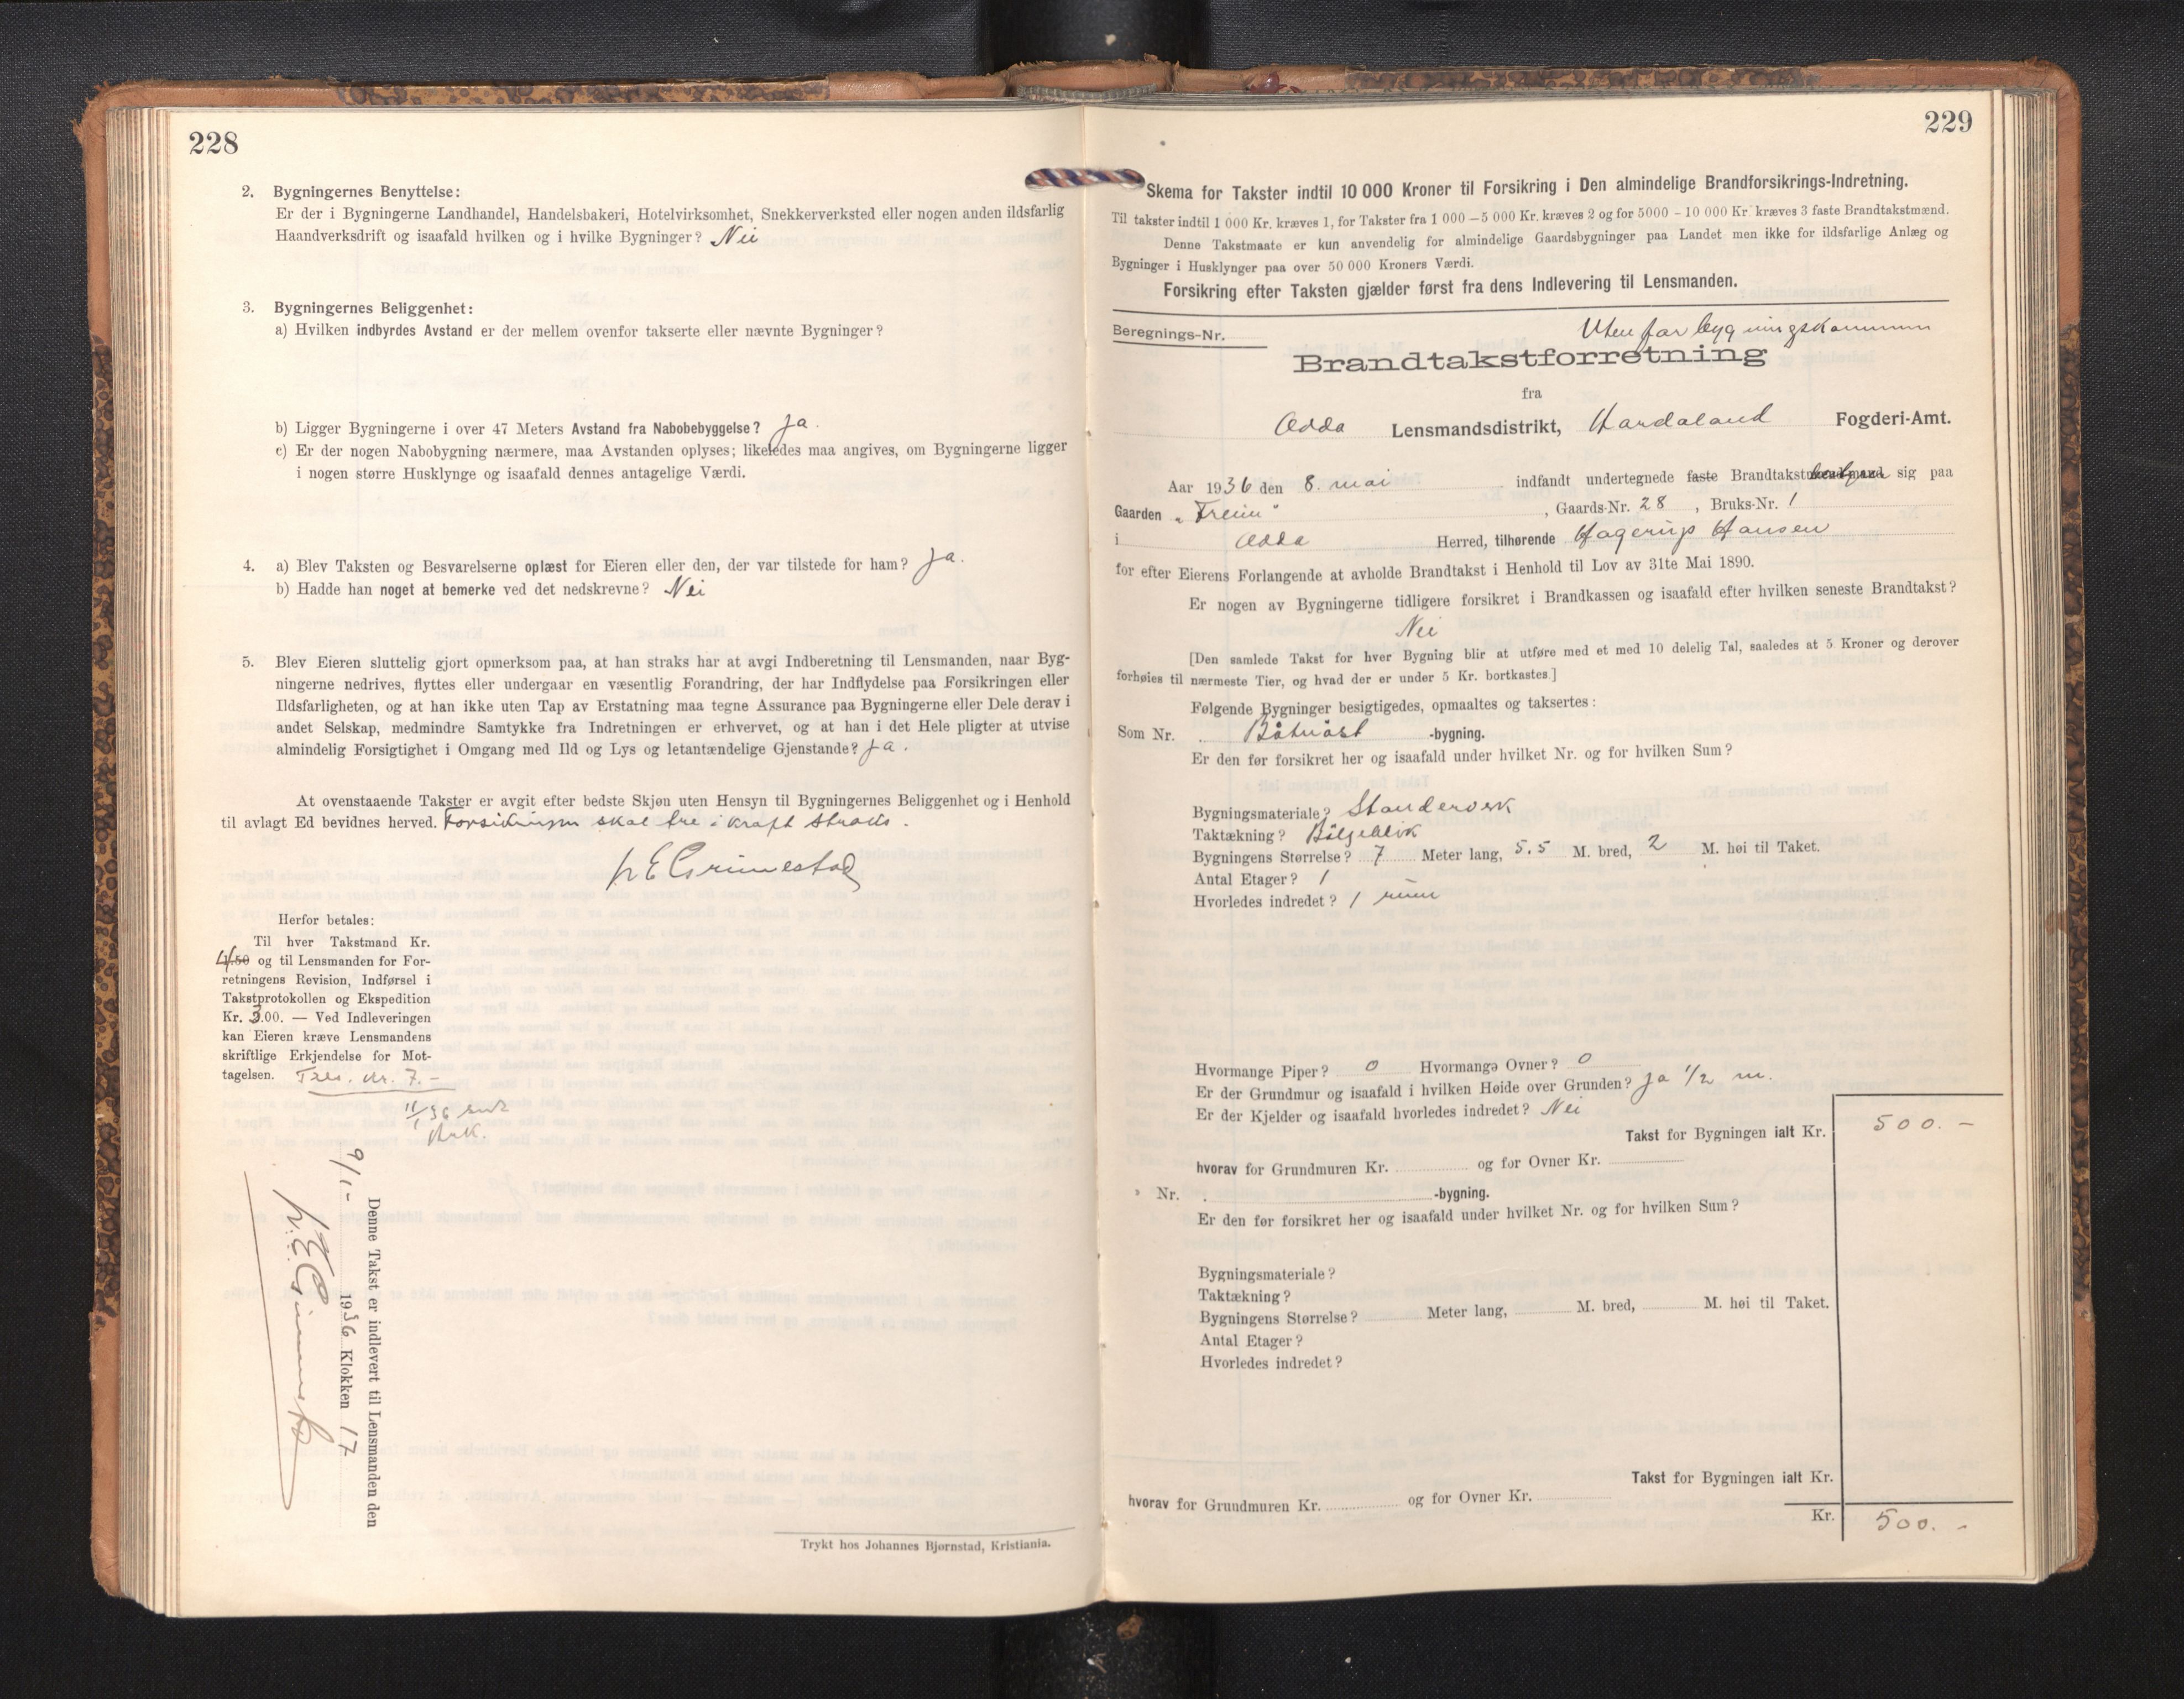 228
2. Bygningernes Benyttelse:
Er der i Bygningerne Landhandel, Handelsbakeri, Hotelvirksomhet, Snekkerverksted eller nogen anden ildsfarlig
Haandverksdrift og isaafald hvilken og i hvilke Bygninger? Nei
3. Bygningernes Beliggenhet:
a) Hvilken indbyrdes Avstand er der mellem ovenfor takserte eller nævnte Bygninger?
b) Ligger Bygningerne i over 47 Meters Avstand fra Nabobebyggelse? Ja.
c) Er der nogen Nabobygning nærmere, maa Avstanden oplyses; likeledes maa angives, om Bygningerne ligger
i nogen større Husklynge og isaafald dennes antagelige Værdi.
4. a) Blev Taksten og Besvarelserne oplæst for Eieren eller den, der var tilstede for ham? Ja.
b) Hadde han noget at bemerke ved det nedskrevne? Nei
5. Blev Eieren sluttelig gjort opmerksom paa, at han straks har at avgi Indberetning til Lensmanden, naar Byg-
ningerne nedrives, flyttes eller undergaar en væsentlig Forandring, der har Indflydelse paa Forsikringen eller
Ildsfarligheten, og at han ikke uten Tap av Erstatning maa tegne Assurance paa Bygningerne eller Dele derav i
andet Selskap, medmindre Samtykke fra Indretningen er erhvervet, og at han i det Hele pligter at utvise
almindelig Forsigtighet i Omgang med Ild og Lys og letantændelige Gjenstande? Ja.
At ovenstaaende Takster er avgit efter bedste Skjøn uten Hensyn til Bygningernes Beliggenhet og i Henhold
til avlagt Ed bevidnes herved. Forsikringen skal tre i kraft straks.
h E Grimestad
Herfor betales:
Til hver Takstmand Kr.
4 1.50 og til Lensmanden for For-
retningens Revision, Indførsel i
Takstprotokollen og Ekspedition
Kr. 3.00. — Ved Indleveringen
kan Eieren kræve Lensmandens
skriftlige Erkjendelse for Mot-
tagelsen. Tils. kr. 7.-
11/1 36
Denne Takst er indlevert til Lensmanden den
9/1- 1936 Klokken 17
h. E Grimestad
Trykt hos Johannes Bjørnstad, Kristiania.
229
Skema for Takster indtil 10 000 Kroner til Forsikring i Den almindelige Brandforsikrings-Indretning.
Til takster indtil 1 000 Kr. kræves 1, for Takster fra 1 000 – 5 000 Kr. kræves 2 og for 5000 – 10 000 Kr. kræves 3 faste Brandtakstmænd.
Denne Takstmaate er kun anvendelig for almindelige Gaardsbygninger paa Landet men ikke for ildsfarlige Anlæg og
Bygninger i Husklynger paa over 50 000 Kroners Værdi.
Forsikring efter Taksten gjælder først fra dens Indlevering til Lensmanden.
Beregnings-Nr. Utenfor bygningskommun
Brandtakstforretning
fra
Odda Lensmandsdistrikt, Hordaland Fogderi-Amt.
Aar 1936 den 8. mai indfandt undertegnede faste Brandtakstmænd sig paa
Gaarden „Freim" , Gaards-Nr. 28 , Bruks-Nr. 1
i Odda Herred, tilhørende Hagerup Hansen
for efter Eierens Forlangende at avholde Brandtakst i Henhold til Lov av 31te Mai 1890.
Er nogen av Bygningerne tidligere forsikret i Brandkassen og isaafald efter hvilken seneste Brandtakst?
Nei
[Den samlede Takst for hver Bygning blir at utføre med et med 10 delelig Tal, saaledes at 5 Kroner og derover
forhøies til nærmeste Tier, og hvad der er under 5 Kr. bortkastes.]
Følgende Bygninger besigtigedes, opmaaltes og taksertes:
Som Nr. Båtnöst -bygning.
Er den før forsikret her og isaafald under hvilket Nr. og for hvilken Sum?
Bygningsmateriale? Standerverk
Taktækning? Bölgeblik
Bygningens Størrelse? 7 Meter lang, 5.5 M. bred, 2 M. høi til Taket.
Antal Etager? 1
Hvorledes indredet? 1 rum
Hvormange Piper? 0 Hvormange Ovner? 0
Er der Grundmur og isaafald i hvilken Høide over Grunden? Ja 1/2 m.
Er der Kjelder og isaafald hvorledes indredet? Nei
Takst for Bygningen ialt Kr. 500.-
hvorav for Grundmuren Kr. og for Ovner Kr.
» Nr. -bygning.
Er den før forsikret her og isaafald under hvilket Nr. og for hvilken Sum?
Bygningsmateriale?
Taktækning?
Bygningens Størrelse? Meter lang, M. bred, M. høi til Taket.
Antal Etager?
Hvorledes indredet?
Takst for Bygningen ialt Kr.
hvorav for Grundmuren Kr. og for Ovner Kr.
Kr. 500.-